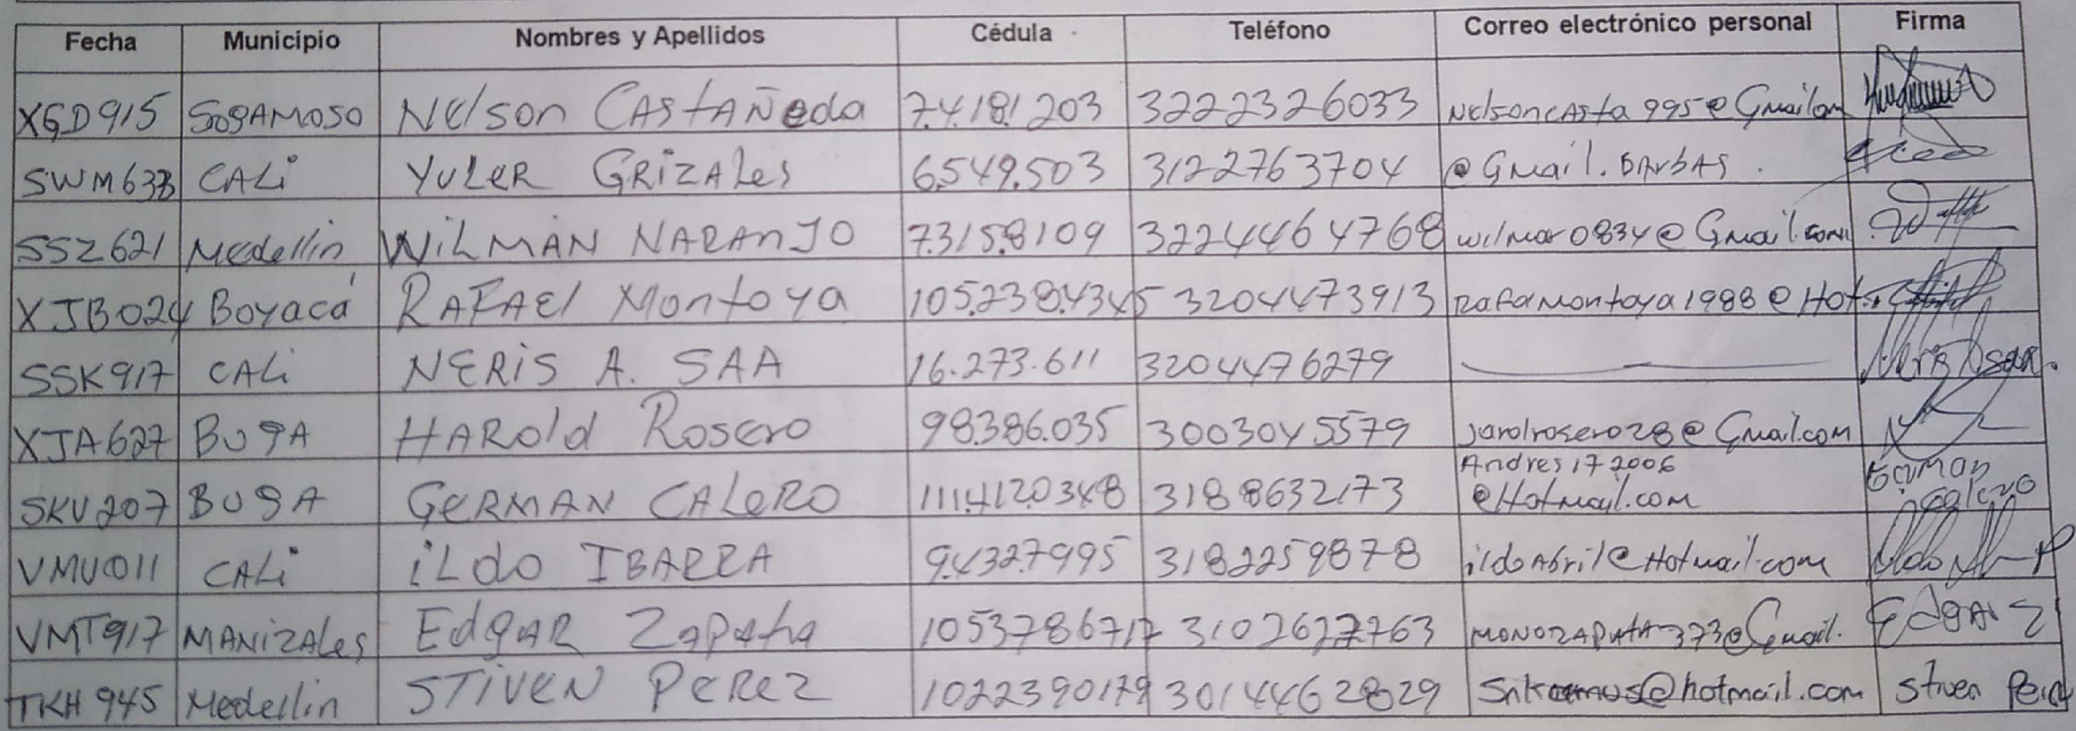 Fecha Municipio Nombres y Apellidos Cédula Teléfono Correo electrónico personal Firma
XGD915 SogAMOSO Nelson CAStAÑeda 74.181.203 3222326033 NelsonCAsta995@Gmail
SWM633 CALi YULER GRIZALes 6.549.503 3122763704 @Gmail.BArbAS.
SSZ621 Medellin WILMAN NARANJO 7.315.8109 3224464768 wilmar0834@Gmail.com
XJB024 Boyacá RAFAEl Montoya 105.238.4345 3204473913 RafaMontoya1988@Hot
SSK917 CALi NERIS A. SAA 16.273.611 3204476279
XJA627 BUgA HARold Rosero 98.386.035 3003045579 Jarolrosero28@Gmail.com
SKV207 BUgA GERMAN CALERO 111.4120.348 3188632173 Andres172006
@Hotmail.com German Calero
VMU011 CALi iLdo IBARRA 94.327.995 3182259878 ildoAbril@Hotmail.com
VMT917 MANIZALes EdgAR Zapata 1053786717 3102627763 MONOZAPAtA373@Gmail. EdgAr Z
TKH945 Medellin STIVEN PEREZ 1022390179 3014462829 @hotmail.com Stiven Perez